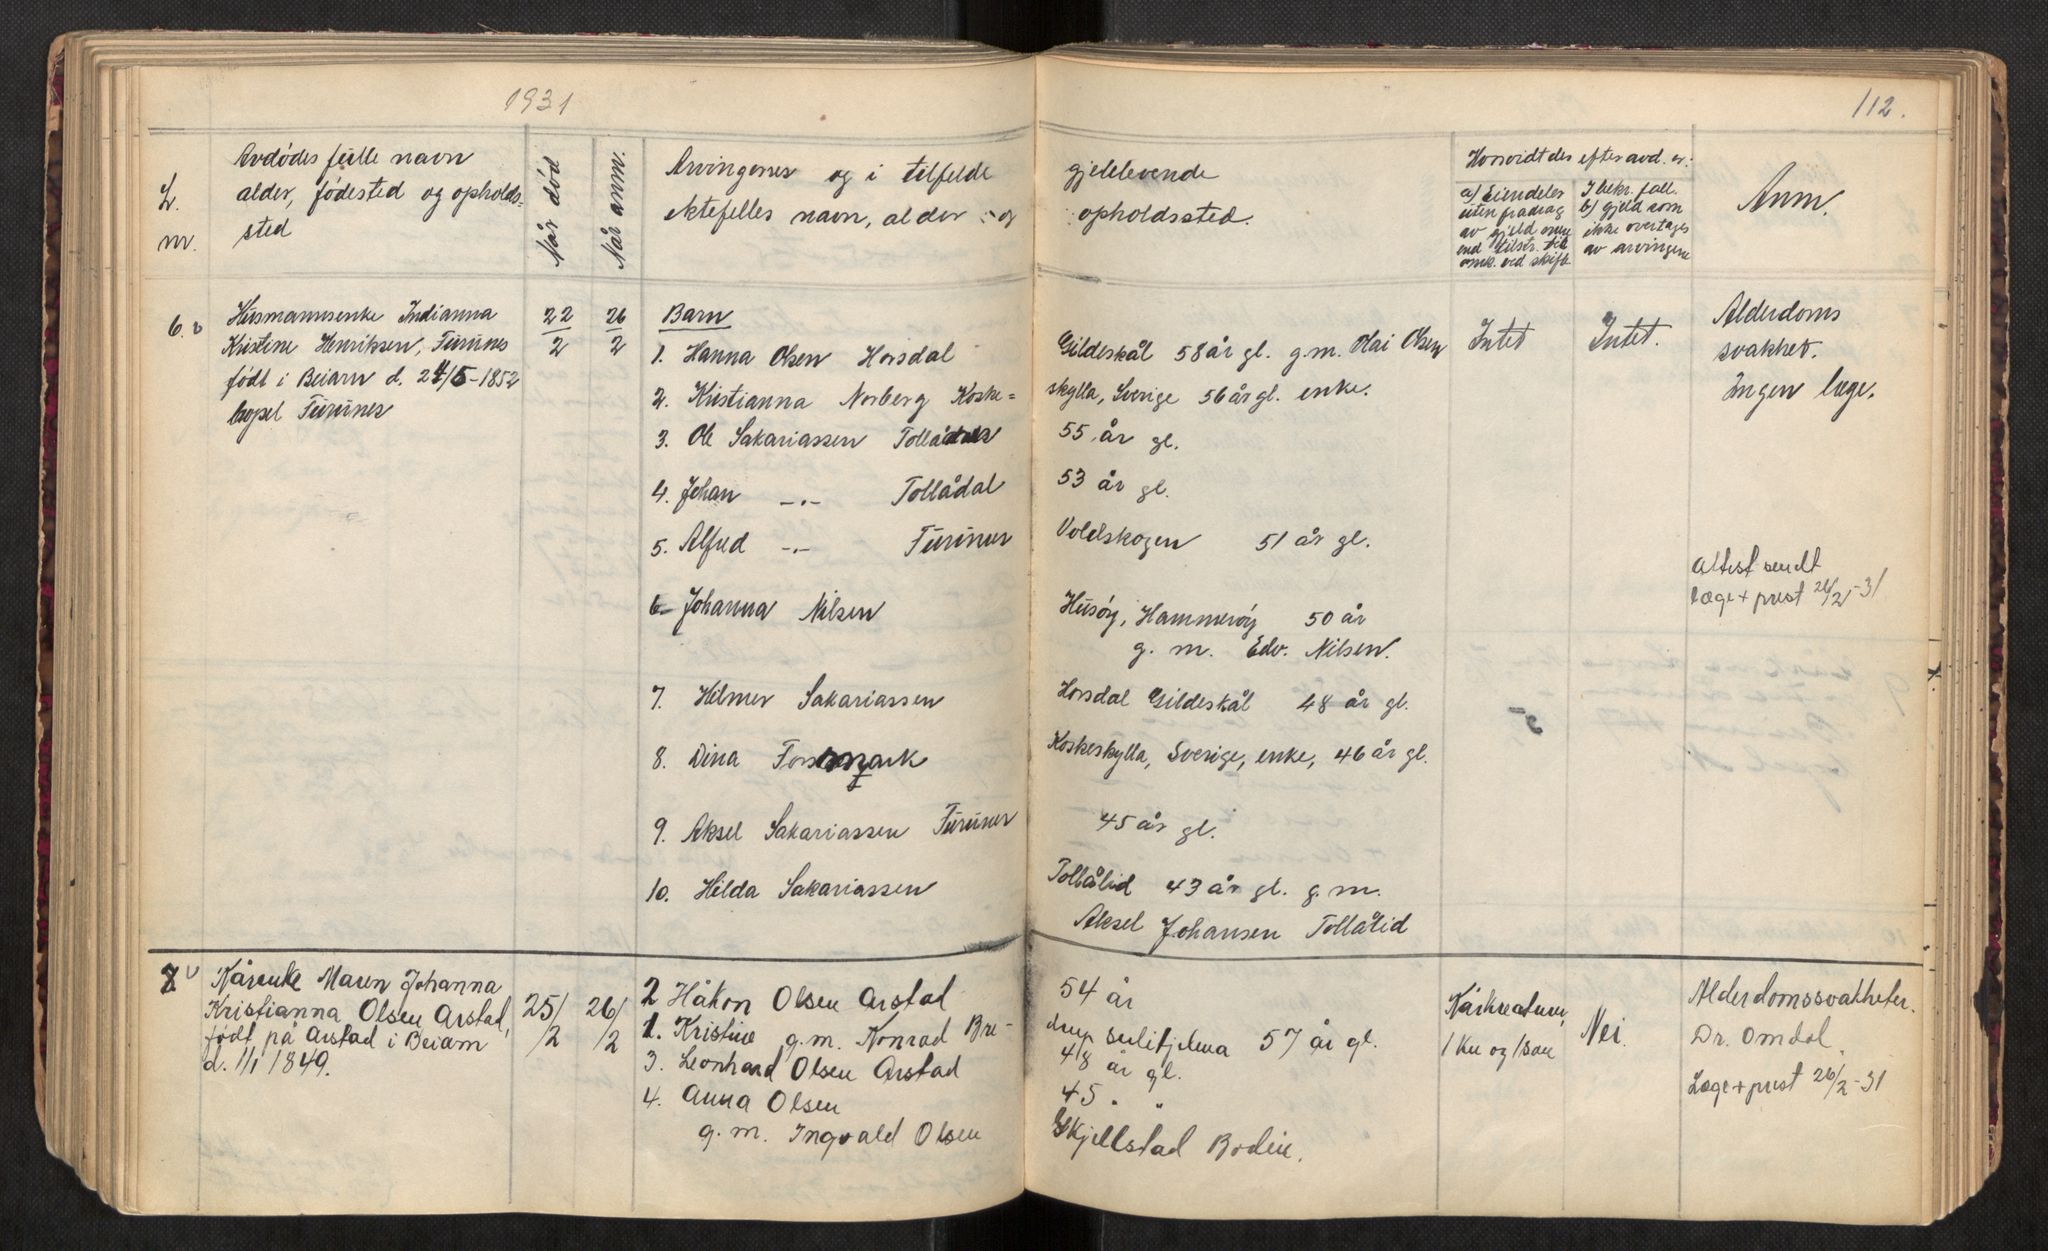 1931
112.
L. nr.
Avdødes fulle navn
alder, fødested og opholds-
sted
Når død
Når anm.
Arvingenes og i tilfelde
ektefelles navn, alder og
gjenlevende
opholdssted.
Hvorvidt der efter avd. er:
a) Eiendeler
uten fradrag
av gjeld
end tilstr. til
omk. ved skifte
I bekr. fall.
b) gjeld som
ikke overtages
av arvingene
Anm.
6. Husmannsenke Indianna
Kristine Henriksen, Furunes
født i Beiarn d. 24/5-1852
bopel Furunes
22/2
26/2
Barn
1. Hanna Olsen Horsdal
Gildeskål 58 år gl. g.m. Olai Olsen
2. Kristianna Norberg Koske=
skylla, Sverige 56 år gl. enke.
3. Ole Sakariassen Tollådal
55 år gl.
4. Johan -"- Tollådal
53 år gl.
5. Alfred -"- Furunes
Voldskogen 51 år gl.
6. Johanna Nilsen
Husøy, Hammerøy 50 år
g. m. Edv. Nilsen.
7. Hilmer Sakariassen
Horsdal Gildeskål 48 år gl.
8. Dina Forsmark
Koskeskylla, Sverige, enke, 46 år gl.
9. Aksel Sakariassen Furunes
45 år gl.
10. Hilda Sakariassen
Tollålid 43 år gl. g. m.
Aksel Johansen Tollålid
Intet
Intet.
Alderdoms
svakhet.
Ingen læge.
Attest sendt
læge + prest 26/2-31
7. Kårenke Maren Johanna
Kristianna Olsen Arstad,
født på Arstad i Beiarn
d. 1/1 1849.
25/2
26/2
2 Håkon Olsen Arstad
54 år
1. Kristine g.m. Konrad Bre-
dung Sulitjelma 57 år gl.
3. Leonhard Olsen Arstad
48 år gl.
4. Anna Olsen
45 " "
g. m. Ingvald Olsen
Skjellstad Bodin.
Kårkreaturer,
1 ku og 1 sau
Nei.
Alderdomssvakheter.
Dr. Omdal
Læge + prest 26/2-31